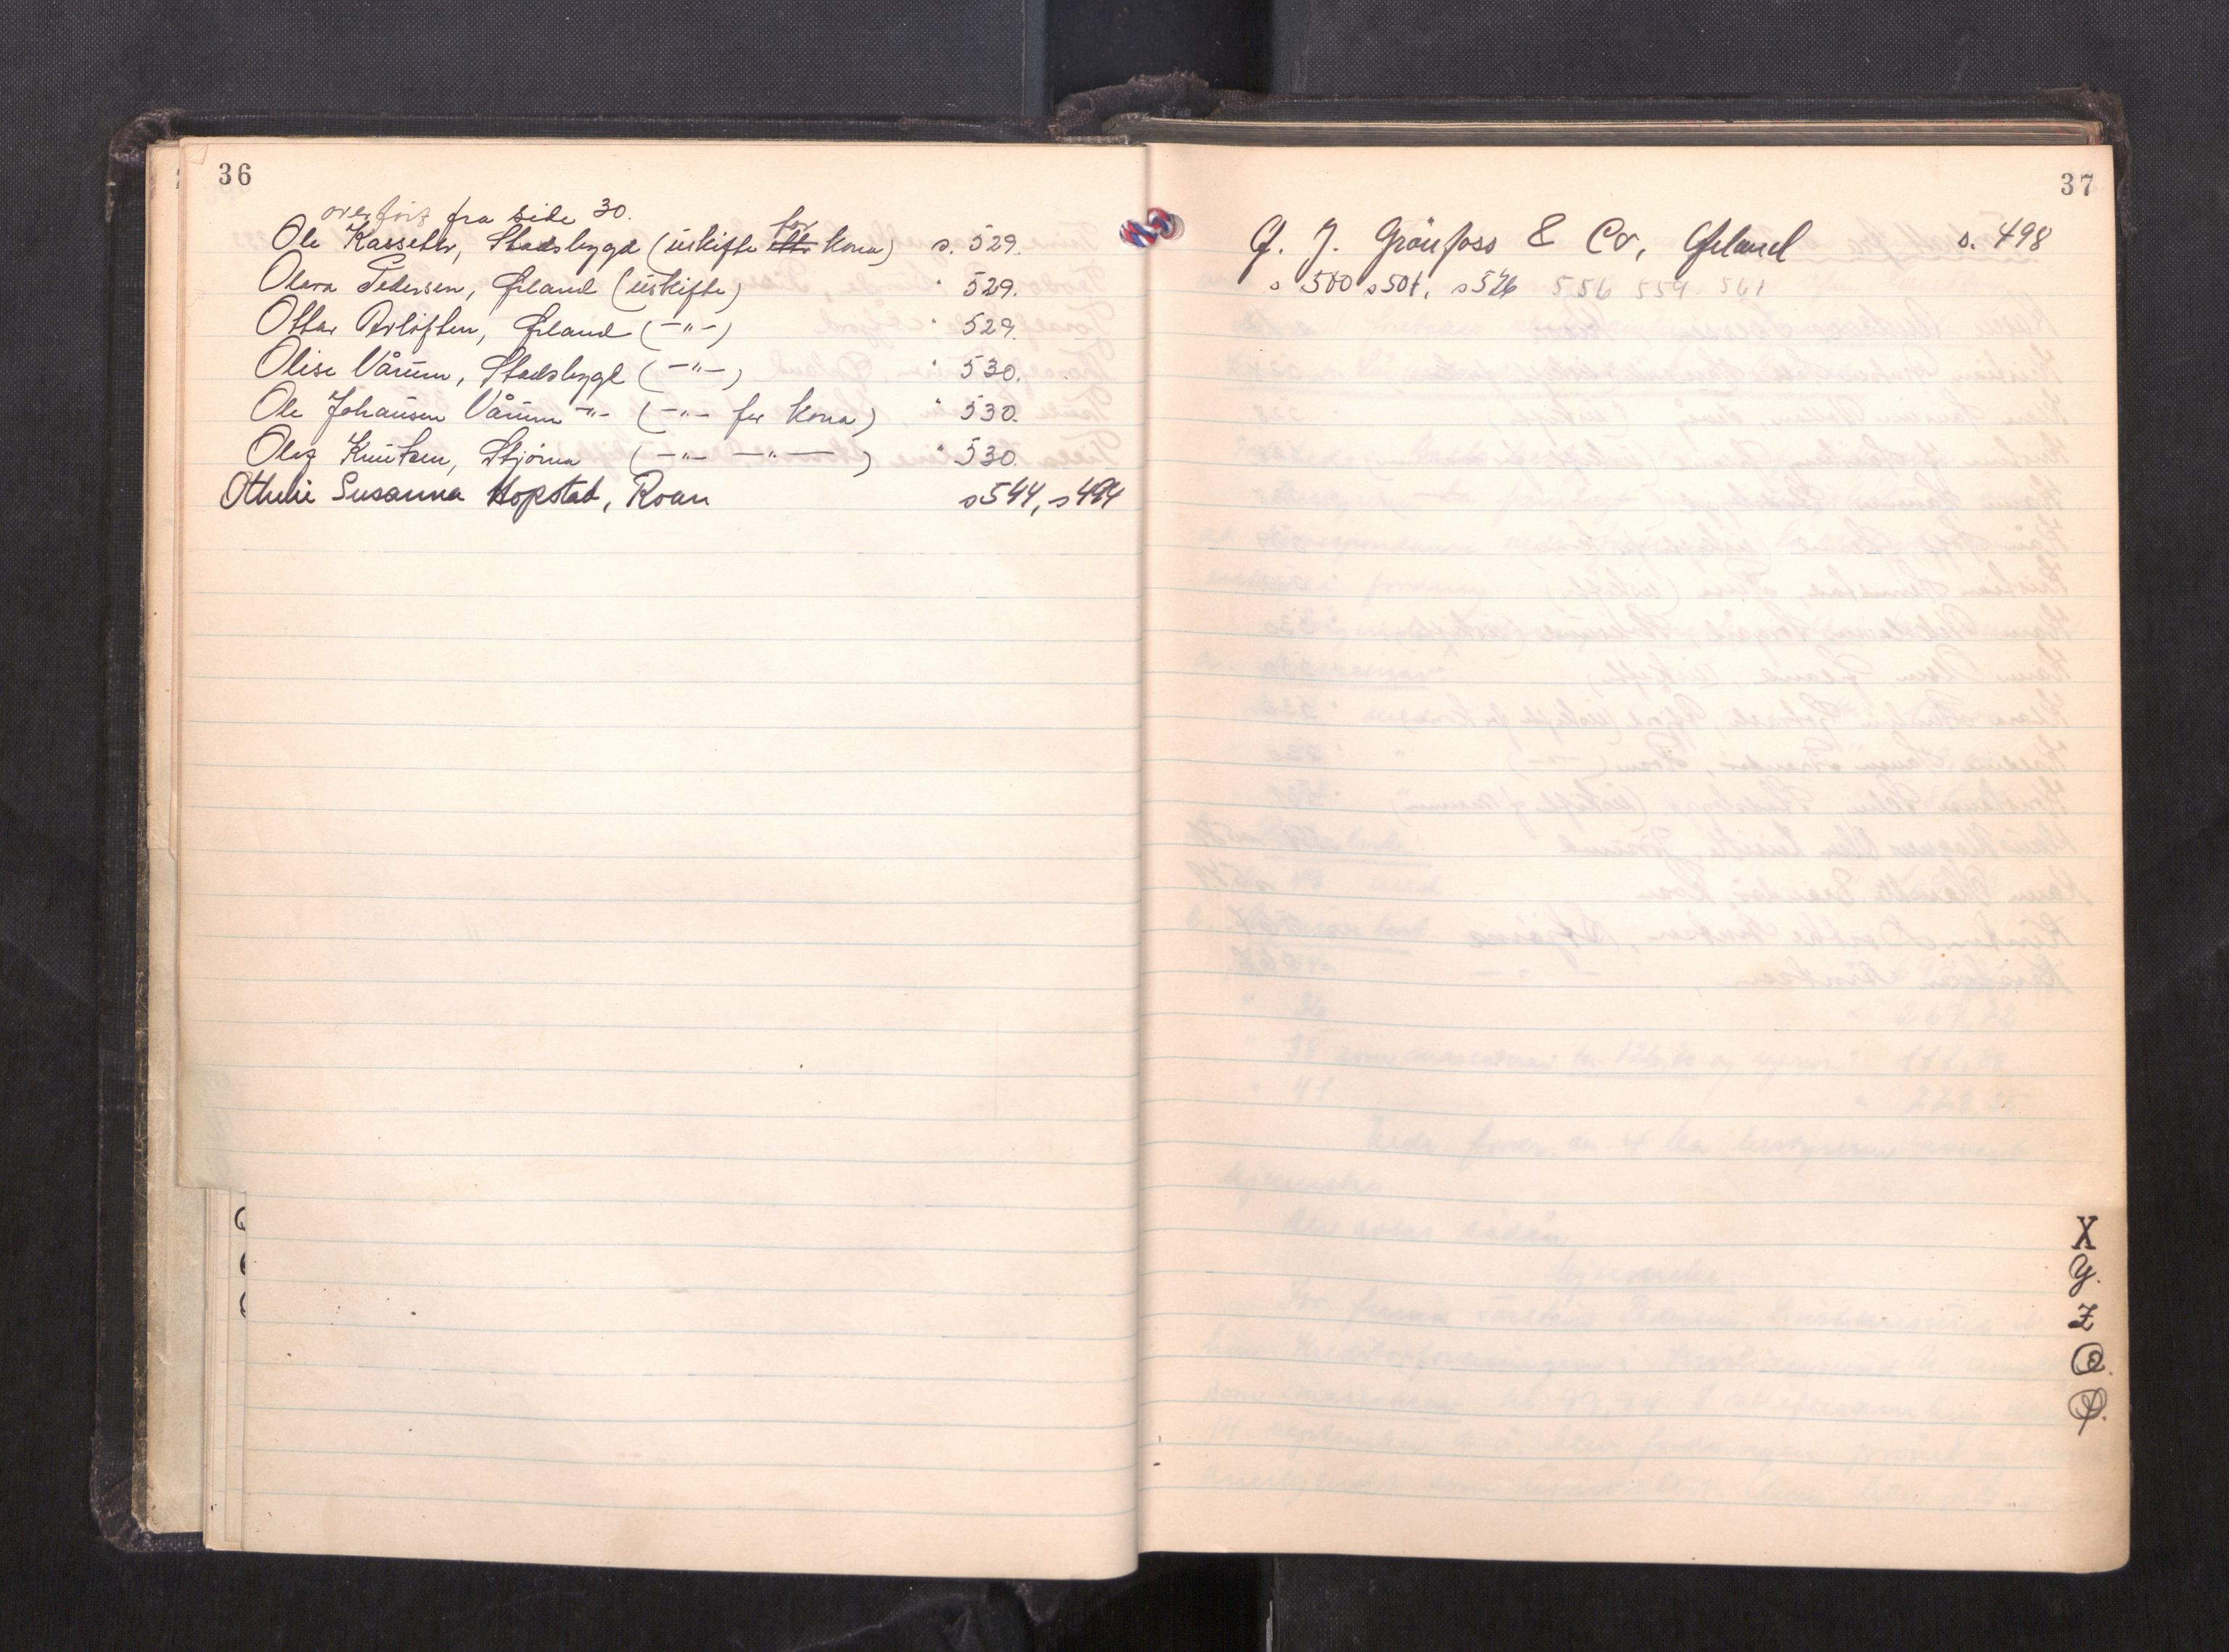 36
overført fra side 30.
Ole Kasseter, Stadsbygd (uskifte etter for kona) s. 529.
Olava Pedersen, Ørland (uskifte) " 529.
Ottar Ørland (-"-) " 529.
Olise Vårum, Stadsbygd (-"-) " 530.
Ole Johansen Vårum -"- (-"- for kona) " 530.
Olaf Knutsen, Stjørna (-"- -"-) " 530.
Othelie Susanna Hopstad, Roan s 544, s 494
37
Ø. J. Grönfoss & Co, Ørland s. 498
s 500 s 501, s 526 556 559 561
X
Y.
Z
Ø.